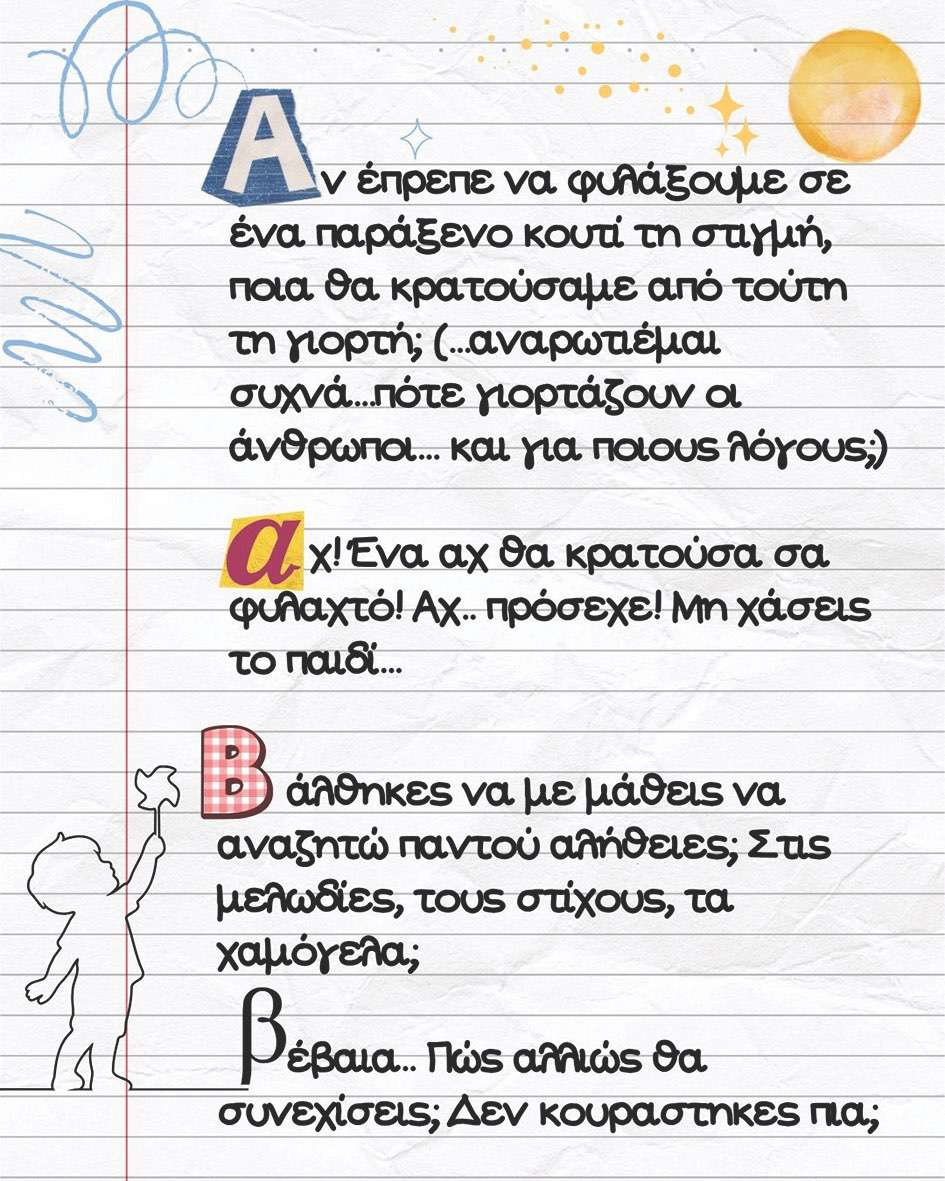 Αν έπρεπε να φυλάξουμε σε
ένα παράξενο κουτί τη στιγμή,
ποια θα κρατούσαμε από τούτη
τη γιορτή; (...αναρωτιέμαι
συχνά...πότε γιορτάζουν οι
άνθρωποι... και για ποιους λόγους;)
αχ! Ένα αχ θα κρατούσα σα
φυλαχτό! Αχ.. πρόσεχε! Μη χάσεις
το παιδί...
Βάλθηκες να με μάθεις να
αναζητώ παντού αλήθειες; Στις
μελωδίες, τους στίχους, τα
χαμόγελα;
βέβαια.. Πώς αλλιώς θα
συνεχίσεις; Δεν κουραστηκες πια;